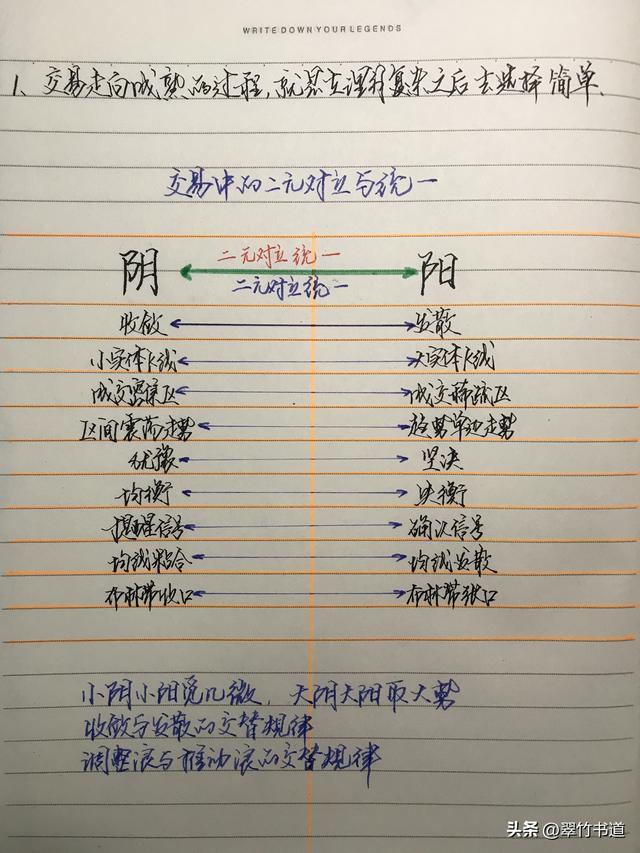 WRITE DOWN YOUR LEGENDS
1、交易走向成熟的过程,就是在理解复杂之后去选择简单.
交易中的二元对立与统一
阴 二元对立统一 阳
二元对立统一
收敛 发散
小实体K线 大实体K线
成交密集区 成交稀疏区
区间震荡走势 趋势单边走势
犹豫 坚决
均衡 失衡
提醒信号 确认信号
均线粘合 均线发散
布林带收口 布林带张口
小阴小阳觅几微,大阴大阳取大势
收敛与发散的交替规律
调整浪与推动浪的交替规律
头条 @翠竹书道